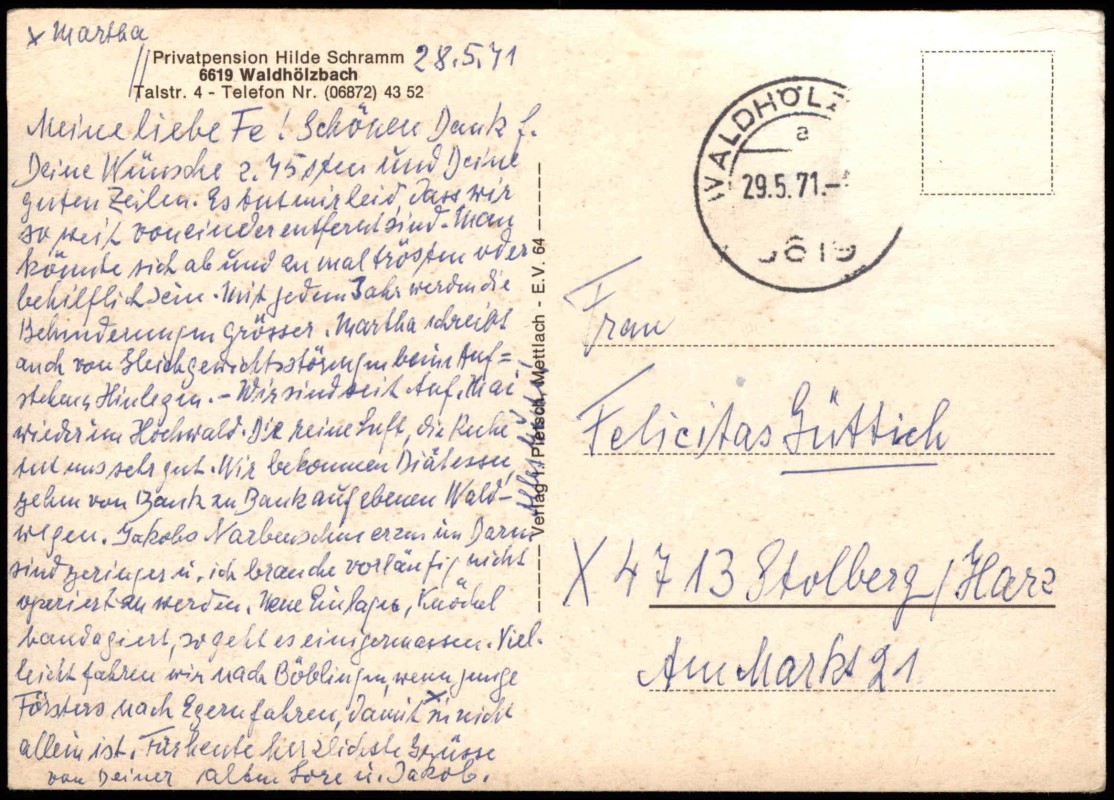 x Martha
Privatpension Hilde Schramm
28.5.71
6619 Waldhölzbach
Talstr. 4 - Telefon Nr. (06872) 43 52
Meine liebe Fe! Schönen Dank f.
Deine Wünsche z. 75sten und Deine
guten Zeilen. Es tut mir leid, dass wir
so weit voneinder entfernt sind. Man
könnte sich ab und zu mal trösten oder
behilflich sein. Mit jedem Jahr werden die
Behinderungen grösser. Martha schreibt
auch von Gleichgewichtsstörungen beim Auf=
stehen u. Hinlegen. - Wir sind seit Anf. Mai
wieder im Hochwald. Die reine Luft, die Ruhe
tut uns sehr gut. Wir bekommen Diätessen,
gehn von Bank zu Bank auf ebenen Wald-
wegen. Jakobs Narbenschmerzen im Darm
sind geringer u. ich brauche vorläufig nicht
operiert zu werden. Neue Einlagen, Knöchel
bandagiert, so geht es einigermassen. Viel-
leicht fahren wir nach Böblingen, wenn junge
Försters nach Egern fahren, damit x nicht
allein ist. Für heute herzlichste Grüsse
von Deiner alten Lore u. Jakob.
Verlag Pietsch, Mettlach - E.V. 64
WALDHÖLZ
a
29.5.71.-
6619
Frau
Felicitas Güttich
X 4713 Stolberg/Harz
Am Markt 21